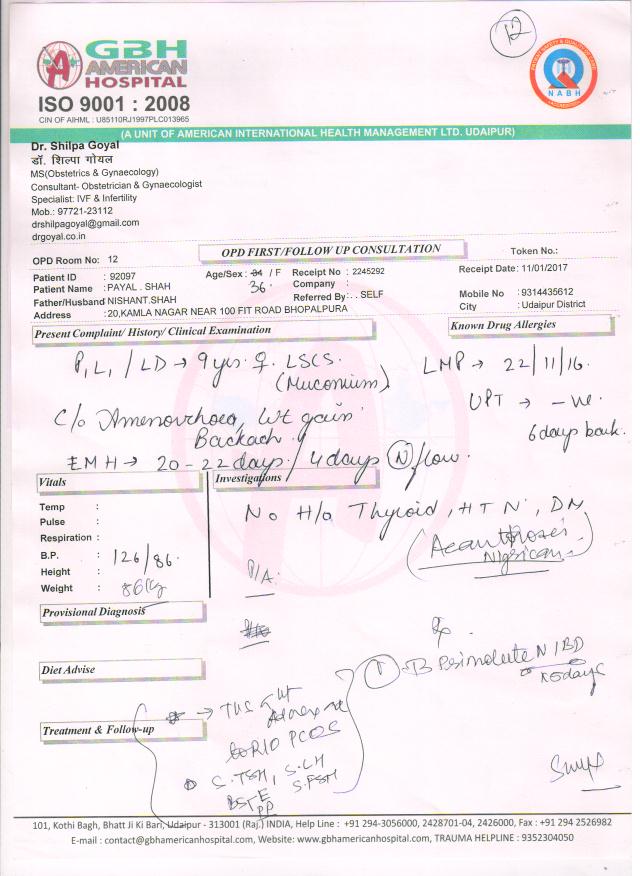 12
GBH
AMERICAN
HOSPITAL
ISO 9001 : 2008
CIN OF AIHML : U85110RJ1997PLC013965
NABH
(A UNIT OF AMERICAN INTERNATIONAL HEALTH MANAGEMENT LTD. UDAIPUR)
Dr. Shilpa Goyal
डॉ. शिल्पा गोयल
MS(Obstetrics & Gynaecology)
Consultant- Obstetrician & Gynaecologist
Specialist: IVF & Infertility
Mob.: 97721-23112
drshilpagoyal@gmail.com
drgoyal.co.in
OPD Room No: 12
OPD FIRST/FOLLOW UP CONSULTATION
Token No.:
Patient ID : 92097 Age/Sex : 34 / F Receipt No : 2245292 Receipt Date: 11/01/2017
36 Company :
Patient Name : PAYAL . SHAH
Father/Husband NISHANT.SHAH Referred By: . . SELF Mobile No : 9314435612
Address : 20,KAMLA NAGAR NEAR 100 FIT ROAD BHOPALPURA City : Udaipur District
Present Complaint/ History/ Clinical Examination Known Drug Allergies
P1L1 / LD → 9 yrs. LSCS. LMP → 22/11/16.
(Muconium)
UPT → -ve.
C/o Amenorrhoea, Wt gain
Backach 6 days back.
EMH → 20-22 days / 4 days N flow.
Vitals Investigations
Temp :
Pulse :
Respiration :
B.P. : 126/86.
Height :
Weight : 86 kg
No H/o Thyroid, HTN, DM
(Acanthosis
Nigrican)
P/A.
Provisional Diagnosis
Rx.
Diet Advise
x 5 days
Treatment & Follow-up
→ TVS
R/O PCOS
S. TSH, S. LH
S. FSH
101, Kothi Bagh, Bhatt Ji Ki Bari, Udaipur - 313001 (Raj.) INDIA, Help Line : +91 294-3056000, 2428701-04, 2426000, Fax : +91 294 2526982
E-mail : contact@gbhamericanhospital.com, Website: www.gbhamericanhospital.com, TRAUMA HELPLINE : 9352304050